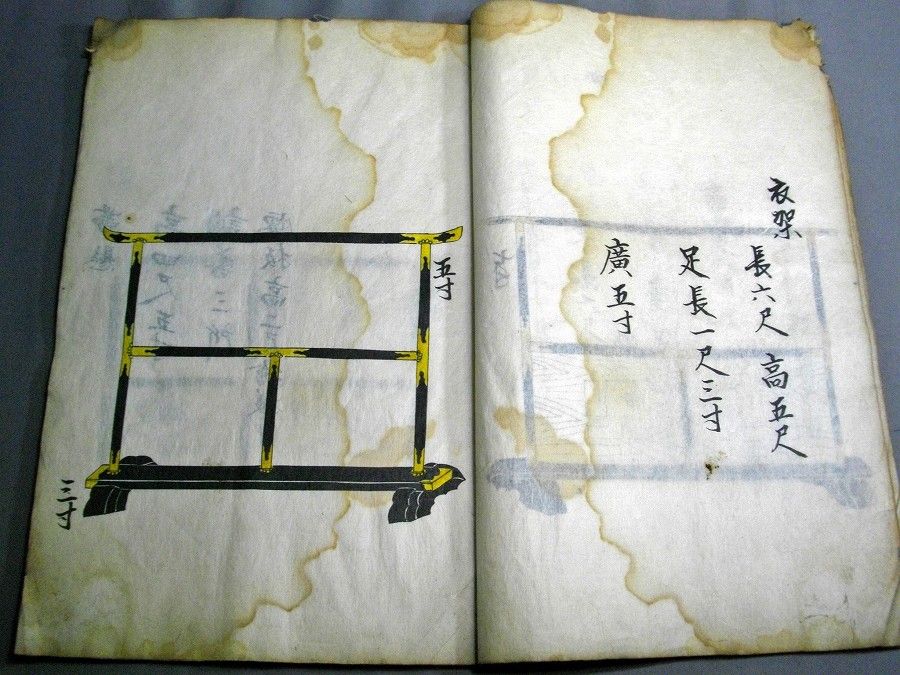 衣架
長六尺 高五尺
足長一尺三寸
廣五寸
五寸
三寸